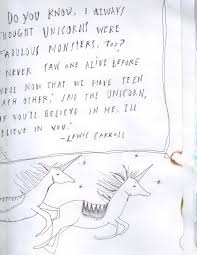 DO YOU KNOW, I ALWAYS
THOUGHT UNICORNS WERE
FABULOUS MONSTERS, TOO?
NEVER SAW ONE ALIVE BEFORE
WELL NOW THAT WE HAVE SEEN
EACH OTHER,' SAID THE UNICORN,
IF YOU'LL BELIEVE IN ME, I'LL
BELIEVE IN YOU.'
- LEWIS CARROLL